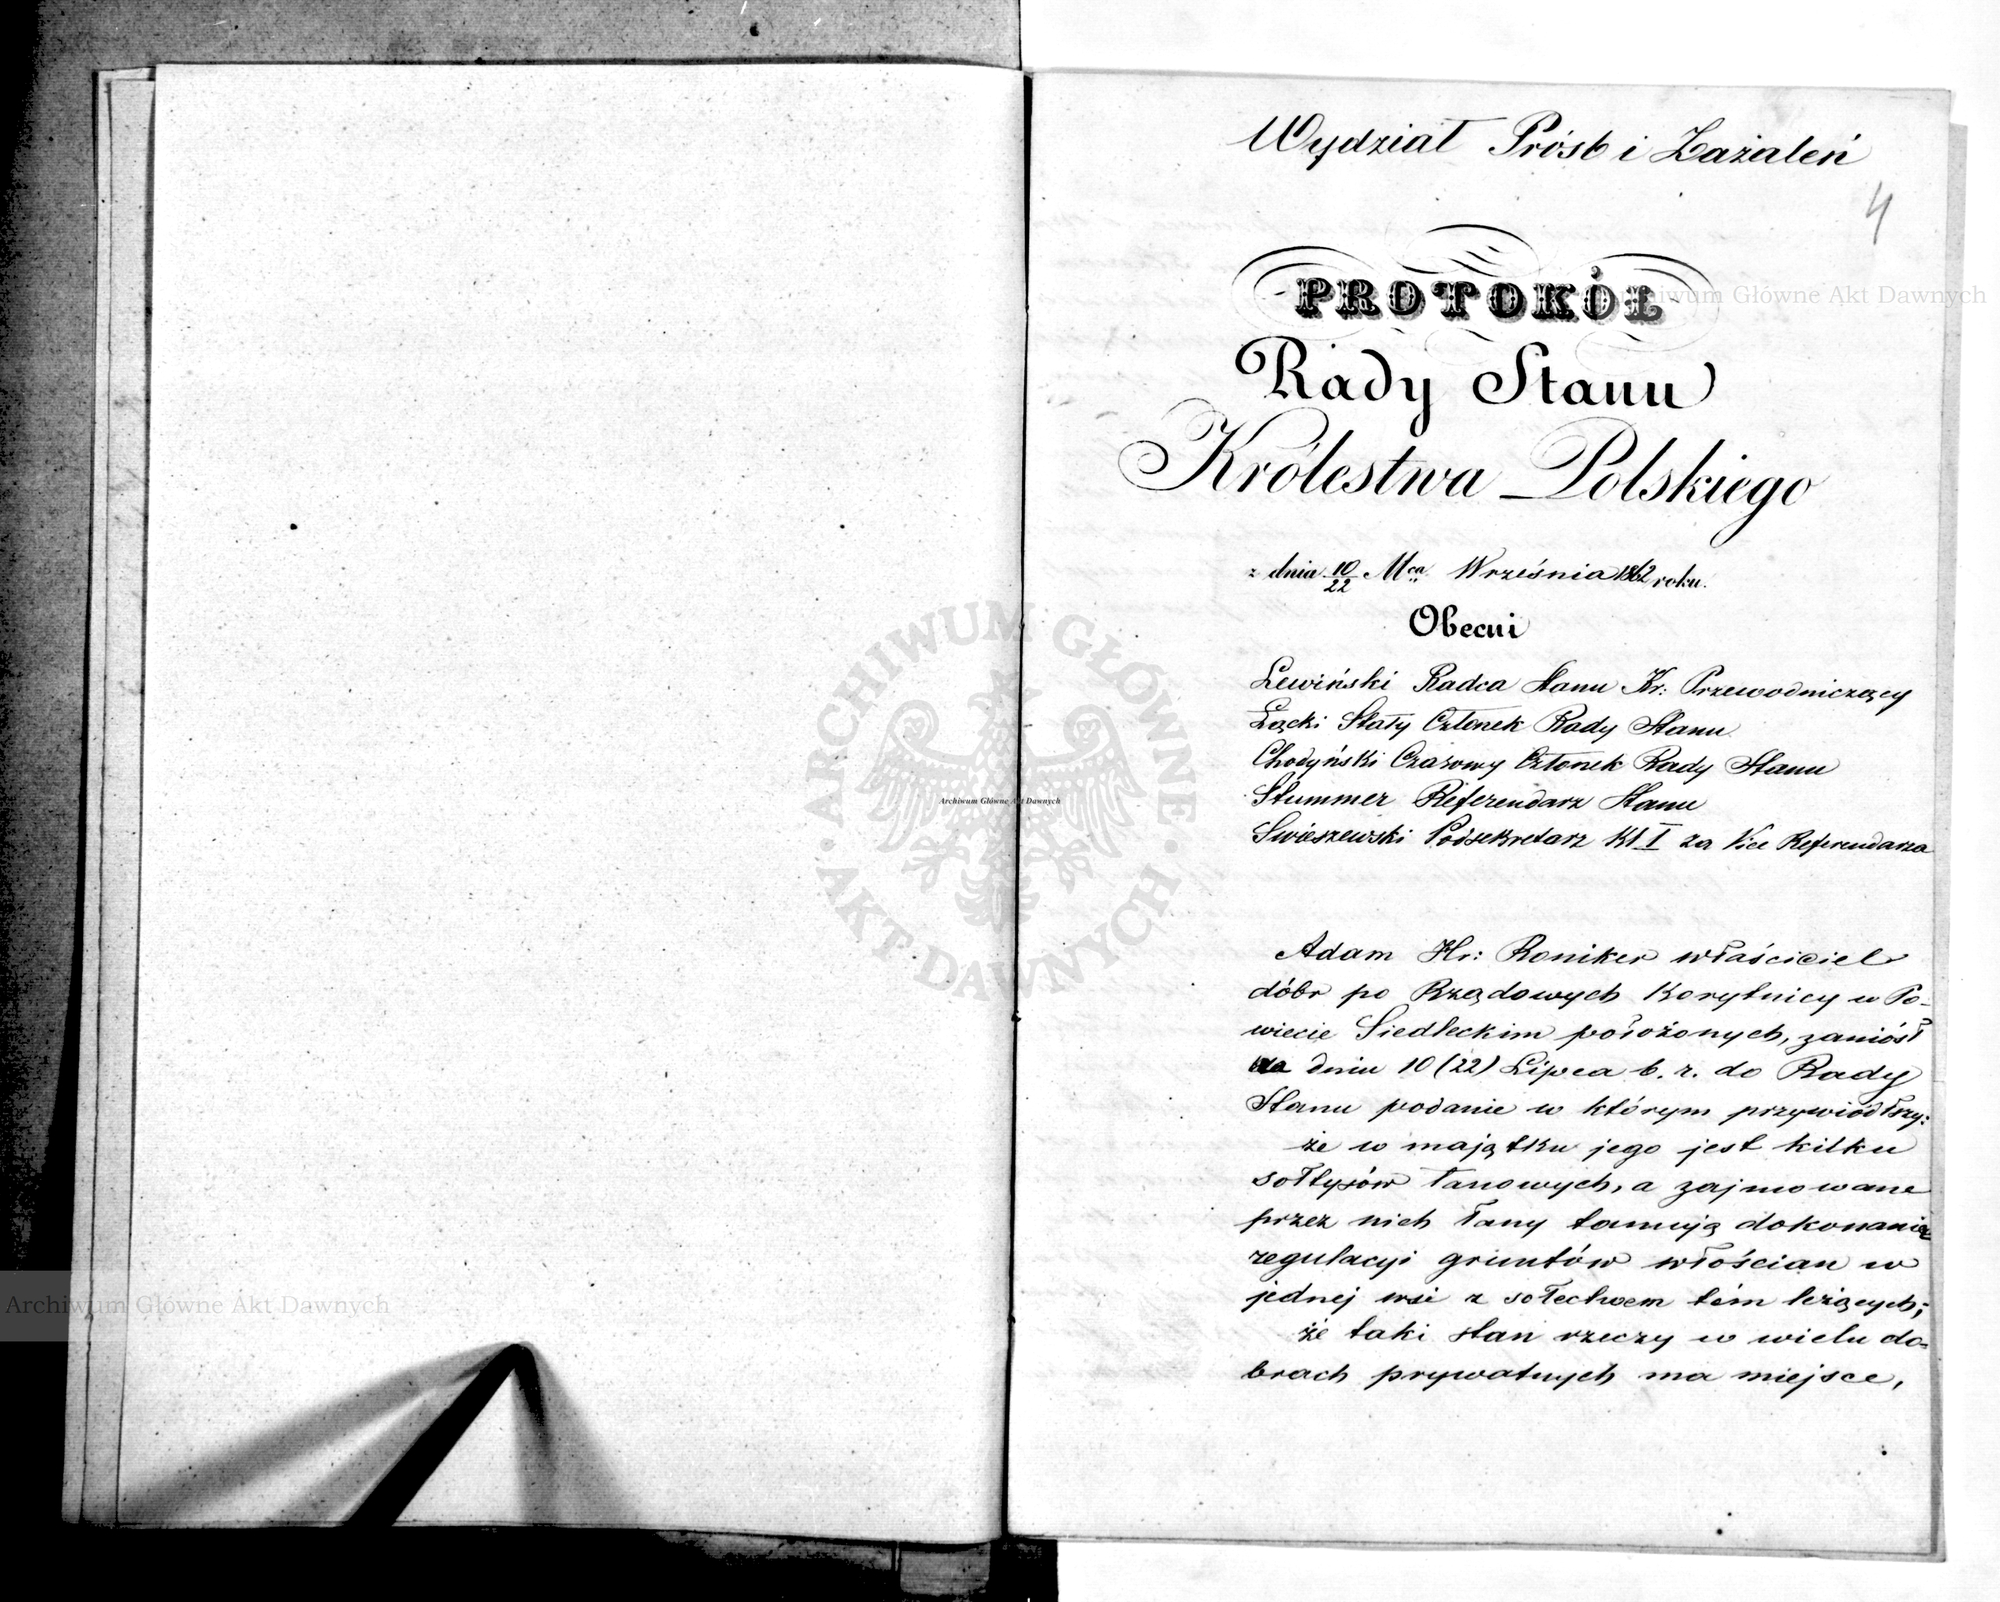 Wydział Próśb i Zażaleń
4
PROTOKÓŁ
Rady Stanu
Królestwa Polskiego
z dnia 10/22 Mca Września 1862 roku.
Obecni
Lewiński Radca Stanu Kr: Przewodniczący
Łącki Stały Członek Rady Stanu
Chodyński Czasowy Członek Rady Stanu
Stummer Referendarz Stanu
Swieszewski Podsekretarz Kl I za Vice Referendarza
Adam Hr: Roniker właściciel
dóbr po Rządowych Korytnicy w Po-
wiecie Siedleckim położonych, zaniósł
dniu 10 (22) Lipca b. r. do Rady
Stanu podanie w którym przywiódłszy:
że w majątku jego jest kilku
sołtysów łanowych, a zajmowane
przez nich łany tamują dokonanie
regulacyi gruntów włościan w
jednej wsi z sołectwem tém leżących;
że taki stan rzeczy w wielu do-
brach prywatnych ma miejsce,
Archiwum Główne Akt Dawnych
Archiwum Główne Akt Dawnych
Archiwum Główne Akt Dawnych
ARCHIWUM GŁÓWNE AKT DAWNYCH